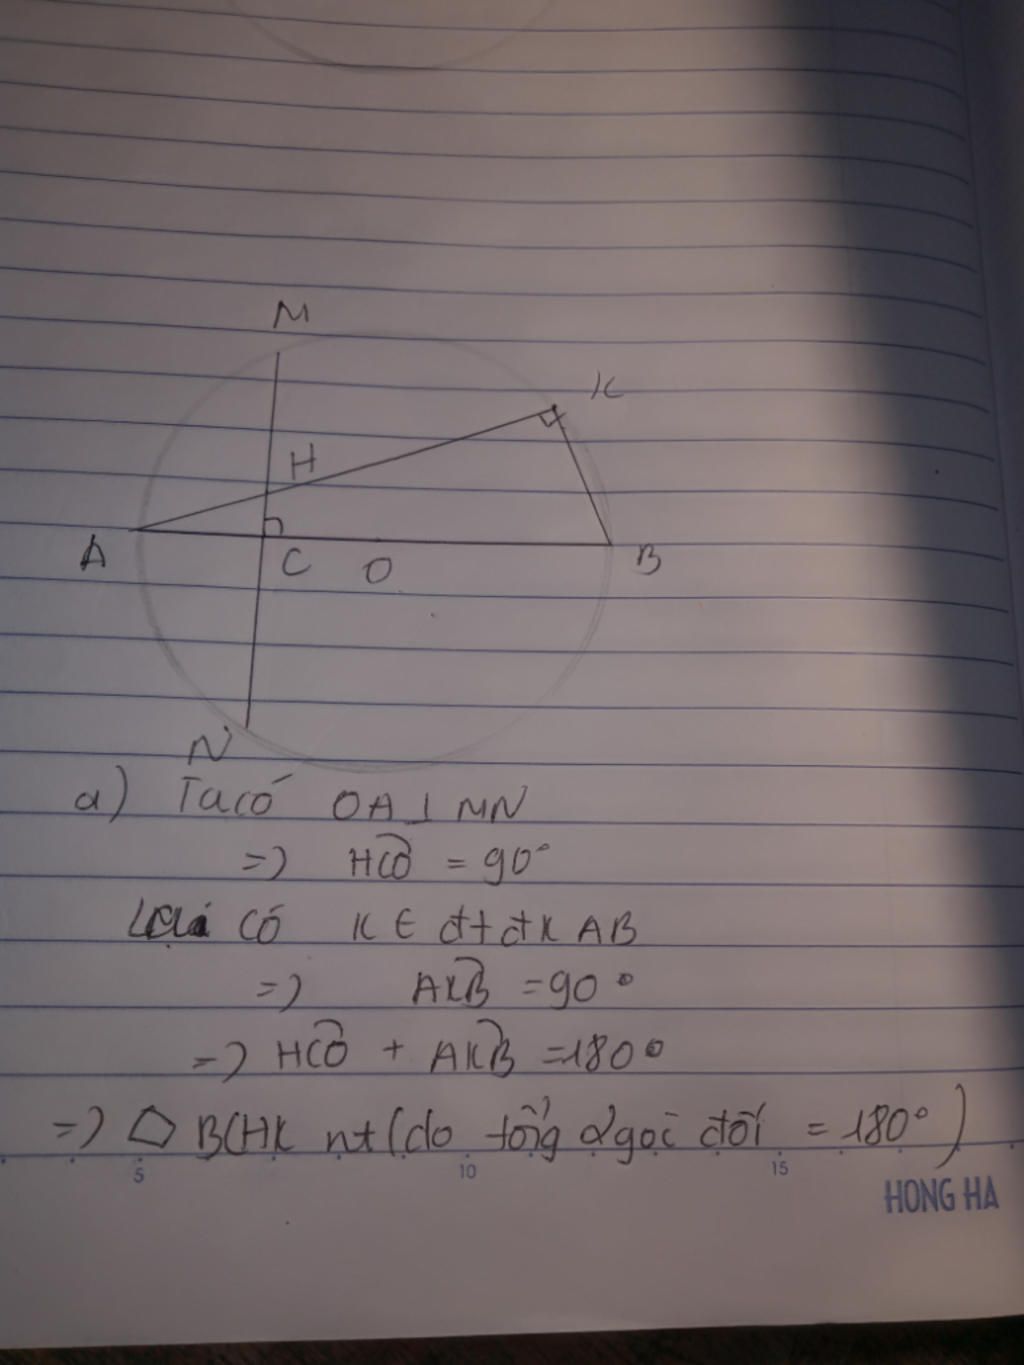 M
K
H
A
C
O
B
N
a) Ta có OA ⊥ MN
=> HCO = 90°
Lại có K ∈ đt đk AB
=> AKB = 90°
=> HCO + AKB = 180°
=> BCHK nt (do tổng 2 góc đối = 180°)
5 10 15
HONG HA